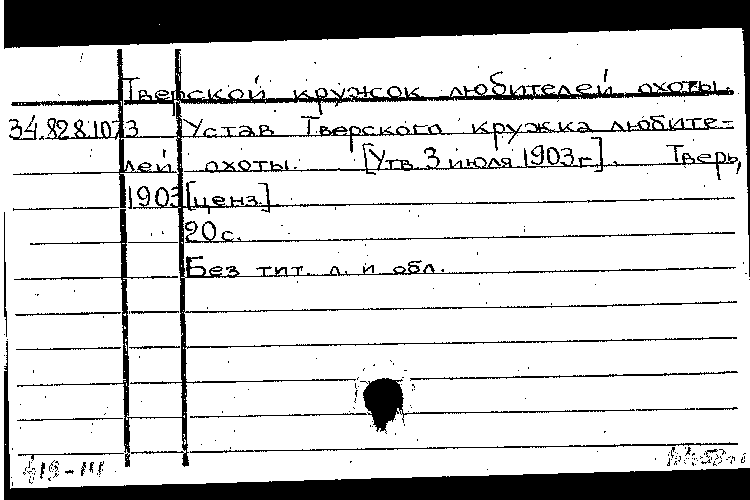 Тверской кружок любителей охоты.
34.82 8.1073 Устав Тверского кружка любите-
лей охоты. [Утв. 3 июля 1903 г.]. Тверь,
1903 [ценз.]
20 с.
Без тит. л. и обл.